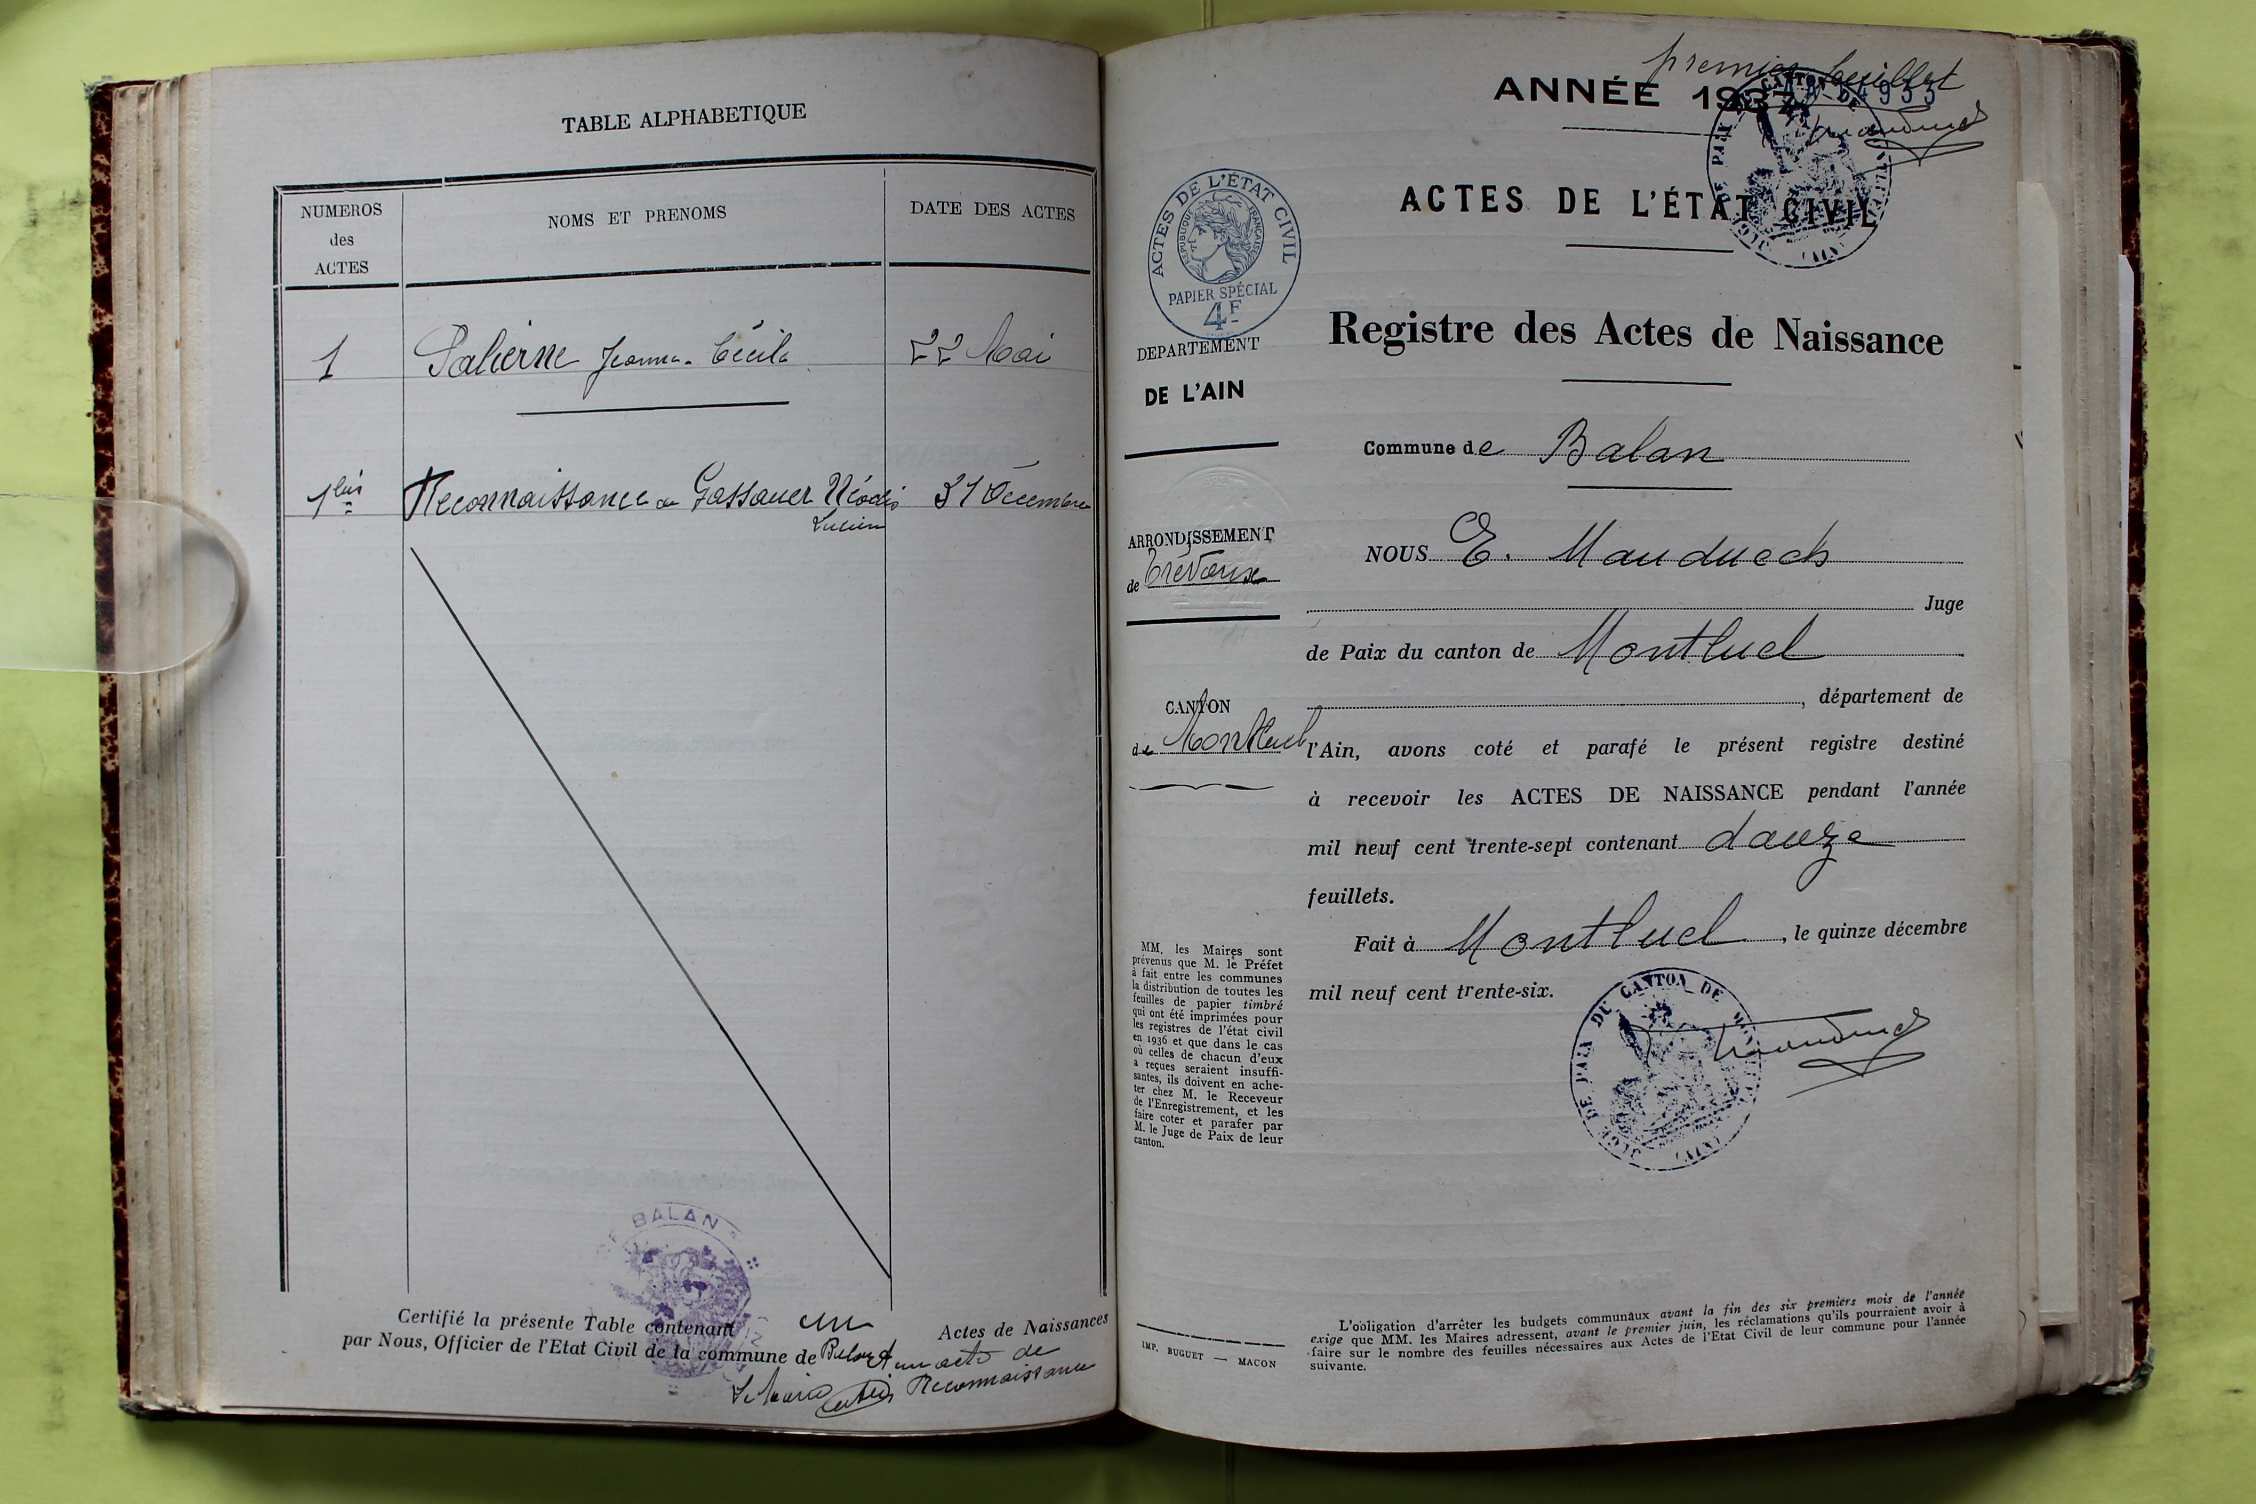 TABLE ALPHABETIQUE
NUMEROS
des
ACTES
NOMS ET PRENOMS
DATE DES ACTES
1 Palierne Jeanne-Cécile 22 Mai
1bis Reconnaissance de Gassauer 31 Décembre
Lucien
BALAN
Certifié la présente Table contenant un Actes de Naissances
par Nous, Officier de l'Etat Civil de la commune de Balan et un acte de
Le Maire Reconnaissance
premier feuillet
ANNÉE 1937
ACTES DE L'ÉTAT CIVIL
ACTES DE L'ÉTAT CIVIL
RÉPUBLIQUE FRANÇAISE
PAPIER SPÉCIAL
4F
DEPARTEMENT
DE L'AIN
Registre des Actes de Naissance
Commune de Balan
ARRONDISSEMENT
de Trévoux
NOUS E. Mauduech
Juge
de Paix du canton de Montluel
, département de
CANTON
de Montluel
l'Ain, avons coté et parafé le présent registre destiné
à recevoir les ACTES DE NAISSANCE pendant l'année
mil neuf cent trente-sept contenant douze
feuillets.
Fait à Montluel, le quinze décembre
mil neuf cent trente-six.
JUGE DE PAIX DU CANTON DE
(AIN)
MM. les Maires sont
prévenus que M. le Préfet
à fait entre les communes
la distribution de toutes les
feuilles de papier timbré
qui ont été imprimées pour
les registres de l'état civil
en 1936 et que dans le cas
où celles de chacun d'eux
a reçues seraient insuffi-
santes, ils doivent en ache-
ter chez M. le Receveur
de l'Enregistrement, et les
faire coter et parafer par
M. le Juge de Paix de leur
canton.
IMP. BUGUET — MACON
L'obligation d'arrêter les budgets communaux avant la fin des six premiers mois de l'année
exige que MM. les Maires adressent, avant le premier juin, les réclamations qu'ils pourraient avoir à
faire sur le nombre des feuilles nécessaires aux Actes de l'Etat Civil de leur commune pour l'année
suivante.